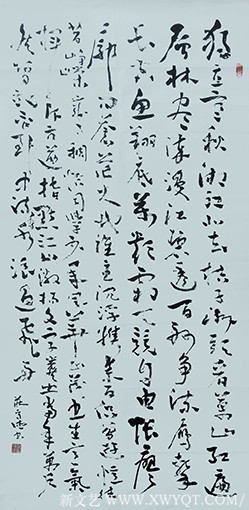 独立寒秋湘江北去橘子洲头看万山红遍
层林尽染漫江碧透百舸争流鹰击
长空鱼翔浅底万类霜天竞自由怅寥
廓问苍茫大地谁主沉浮携来百侣曾游忆往
昔峥嵘岁月稠恰同学少年风华正茂书生意气
挥斥方遒指点江山激扬文字粪土当年万户
侯曾记否到中流击水浪遏飞舟
新文艺 WWW.XWYQT.COM